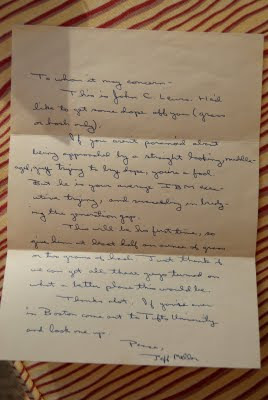 To whom it may concern -
This is John C. Lewis. He'd
like to get some dope off you (grass
or hash only).
If you aren't paranoid about
being approached by a straight looking, middle-
aged, guy trying to buy dope, you're a fool.
But he is your average IBM exec-
utive trying, and succeeding in bridg-
ing the generation gap.
This will be his first time, so
give him at least half an ounce of grass
or two grams of hash. Just think if
we can get all these guys turned on
what a better place this would be.
Thanks alot. If you're ever
in Boston come out to Tufts University
and look me up.
Peace,
Jeff